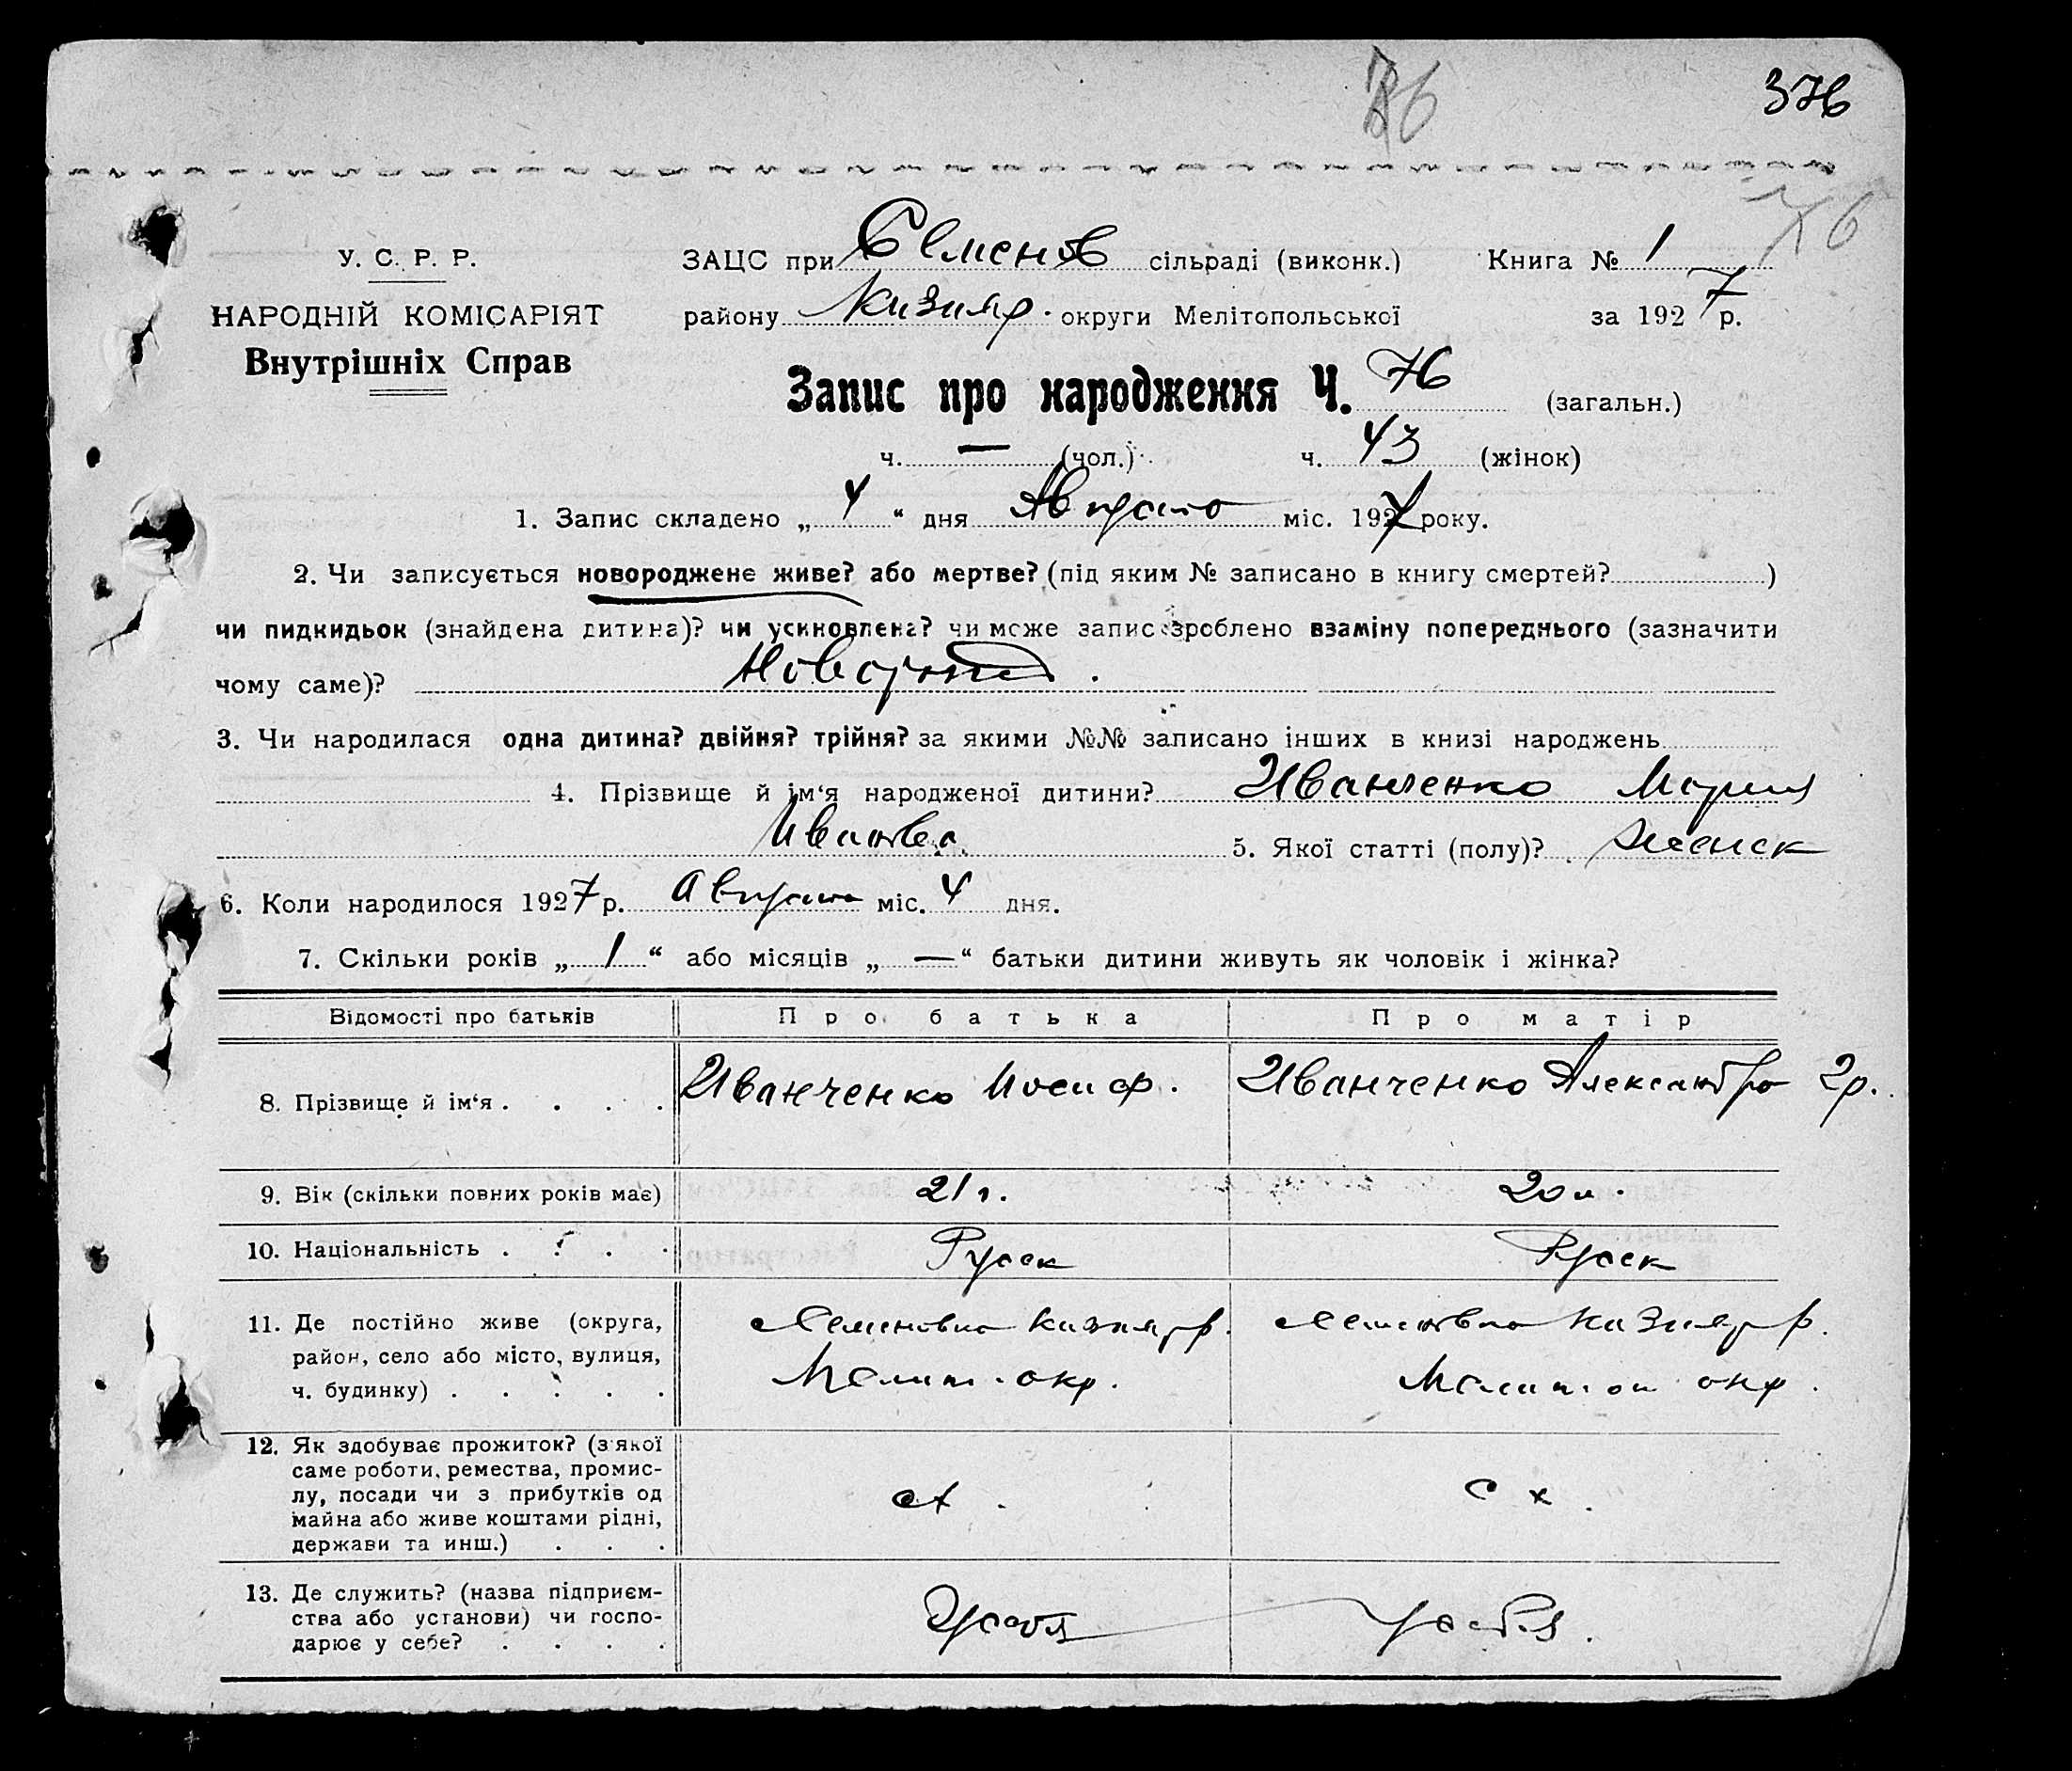 376
76
У. С. Р. Р.
ЗАЦС при Семенов сільраді (виконк.) Книга № 1
НАРОДНІЙ КОМІСАРІЯТ
району Кизияр. округи Мелітопольської за 1927 р.
Внутрішніх Справ
Запис про народження Ч. 76 (загальн.)
ч. — (чол.) ч. 43 (жінок)
1. Запис складено „ 4 “ дня Августа міс. 1927 року.
2. Чи записується новороджене живе? або мертве? (під яким № записано в книгу смертей? )
чи пидкидьок (знайдена дитина)? чи усиновлена? чи може запис зроблено взаміну попереднього (зазначити
чому саме)?
3. Чи народилася одна дитина? двійня? трійня? за якими №№ записано інших в книзі народжень
4. Прізвище й ім‘я народженої дитини? Иванченко Мария
5. Якої статті (полу)? женск
6. Коли народилося 1927 р. Августа міс. 4 дня.
7. Скільки років „ 1 “ або місяців „ — “ батьки дитини живуть як чоловік і жінка?
Відомості про батьків Про батька Про матір
8. Прізвище й ім‘я . . . . Иванченко Иосиф. Иванченко Александра 2р.
9. Вік (скільки повних років має) 21 г. 20 л.
10. Національність . . . . Русск Русск
11. Де постійно живе (округа, Семеновка Кизияр р. Семеновка Кизияр р.
район, село або місто, вулиця,
ч. будинку) . . . . . Мелит. окр. Мелитоп окр.
12. Як здобуває прожиток? (з якої
саме роботи, ремества, промис-
лу, посади чи з прибутків од сх. с х.
майна або живе коштами рідні,
держави та инш.) . . .
13. Де служить? (назва підприєм-
ства або установи) чи госпо- У себя у себя.
дарює у себе? . . . .